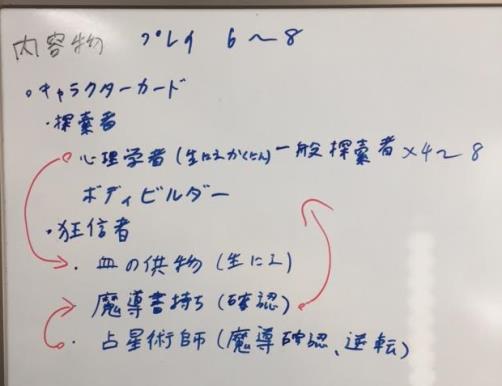 内容物 プレイ 6〜8
・キャラクターカード
・探索者
心理学者(生にえかくにん)一般探索者×4〜8
ボディビルダー
・狂信者
・血の供物(生にえ)
魔導書持ち(確認)
・占星術師(魔導確認、逆転)